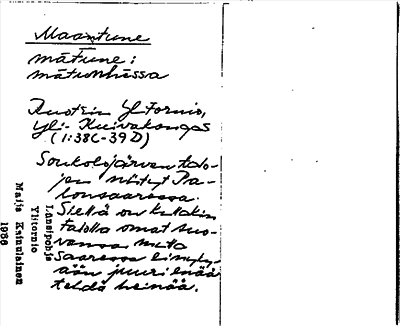 Maantune
mātune:
mātunhēssa
Ruotsin Ylitornio,
Yli-Kuivakangas
(1:38C-39D)
Soukolojärven talo-
jen niityt Pa-
lonsaaressa.
Siellä on kullakin
talolla omat
vansa mutta
Saaressa ei nyky-
ään juuri enää
tehdä heinää.
Länsipohja
Ylitornio
Maija Kainulainen
1986